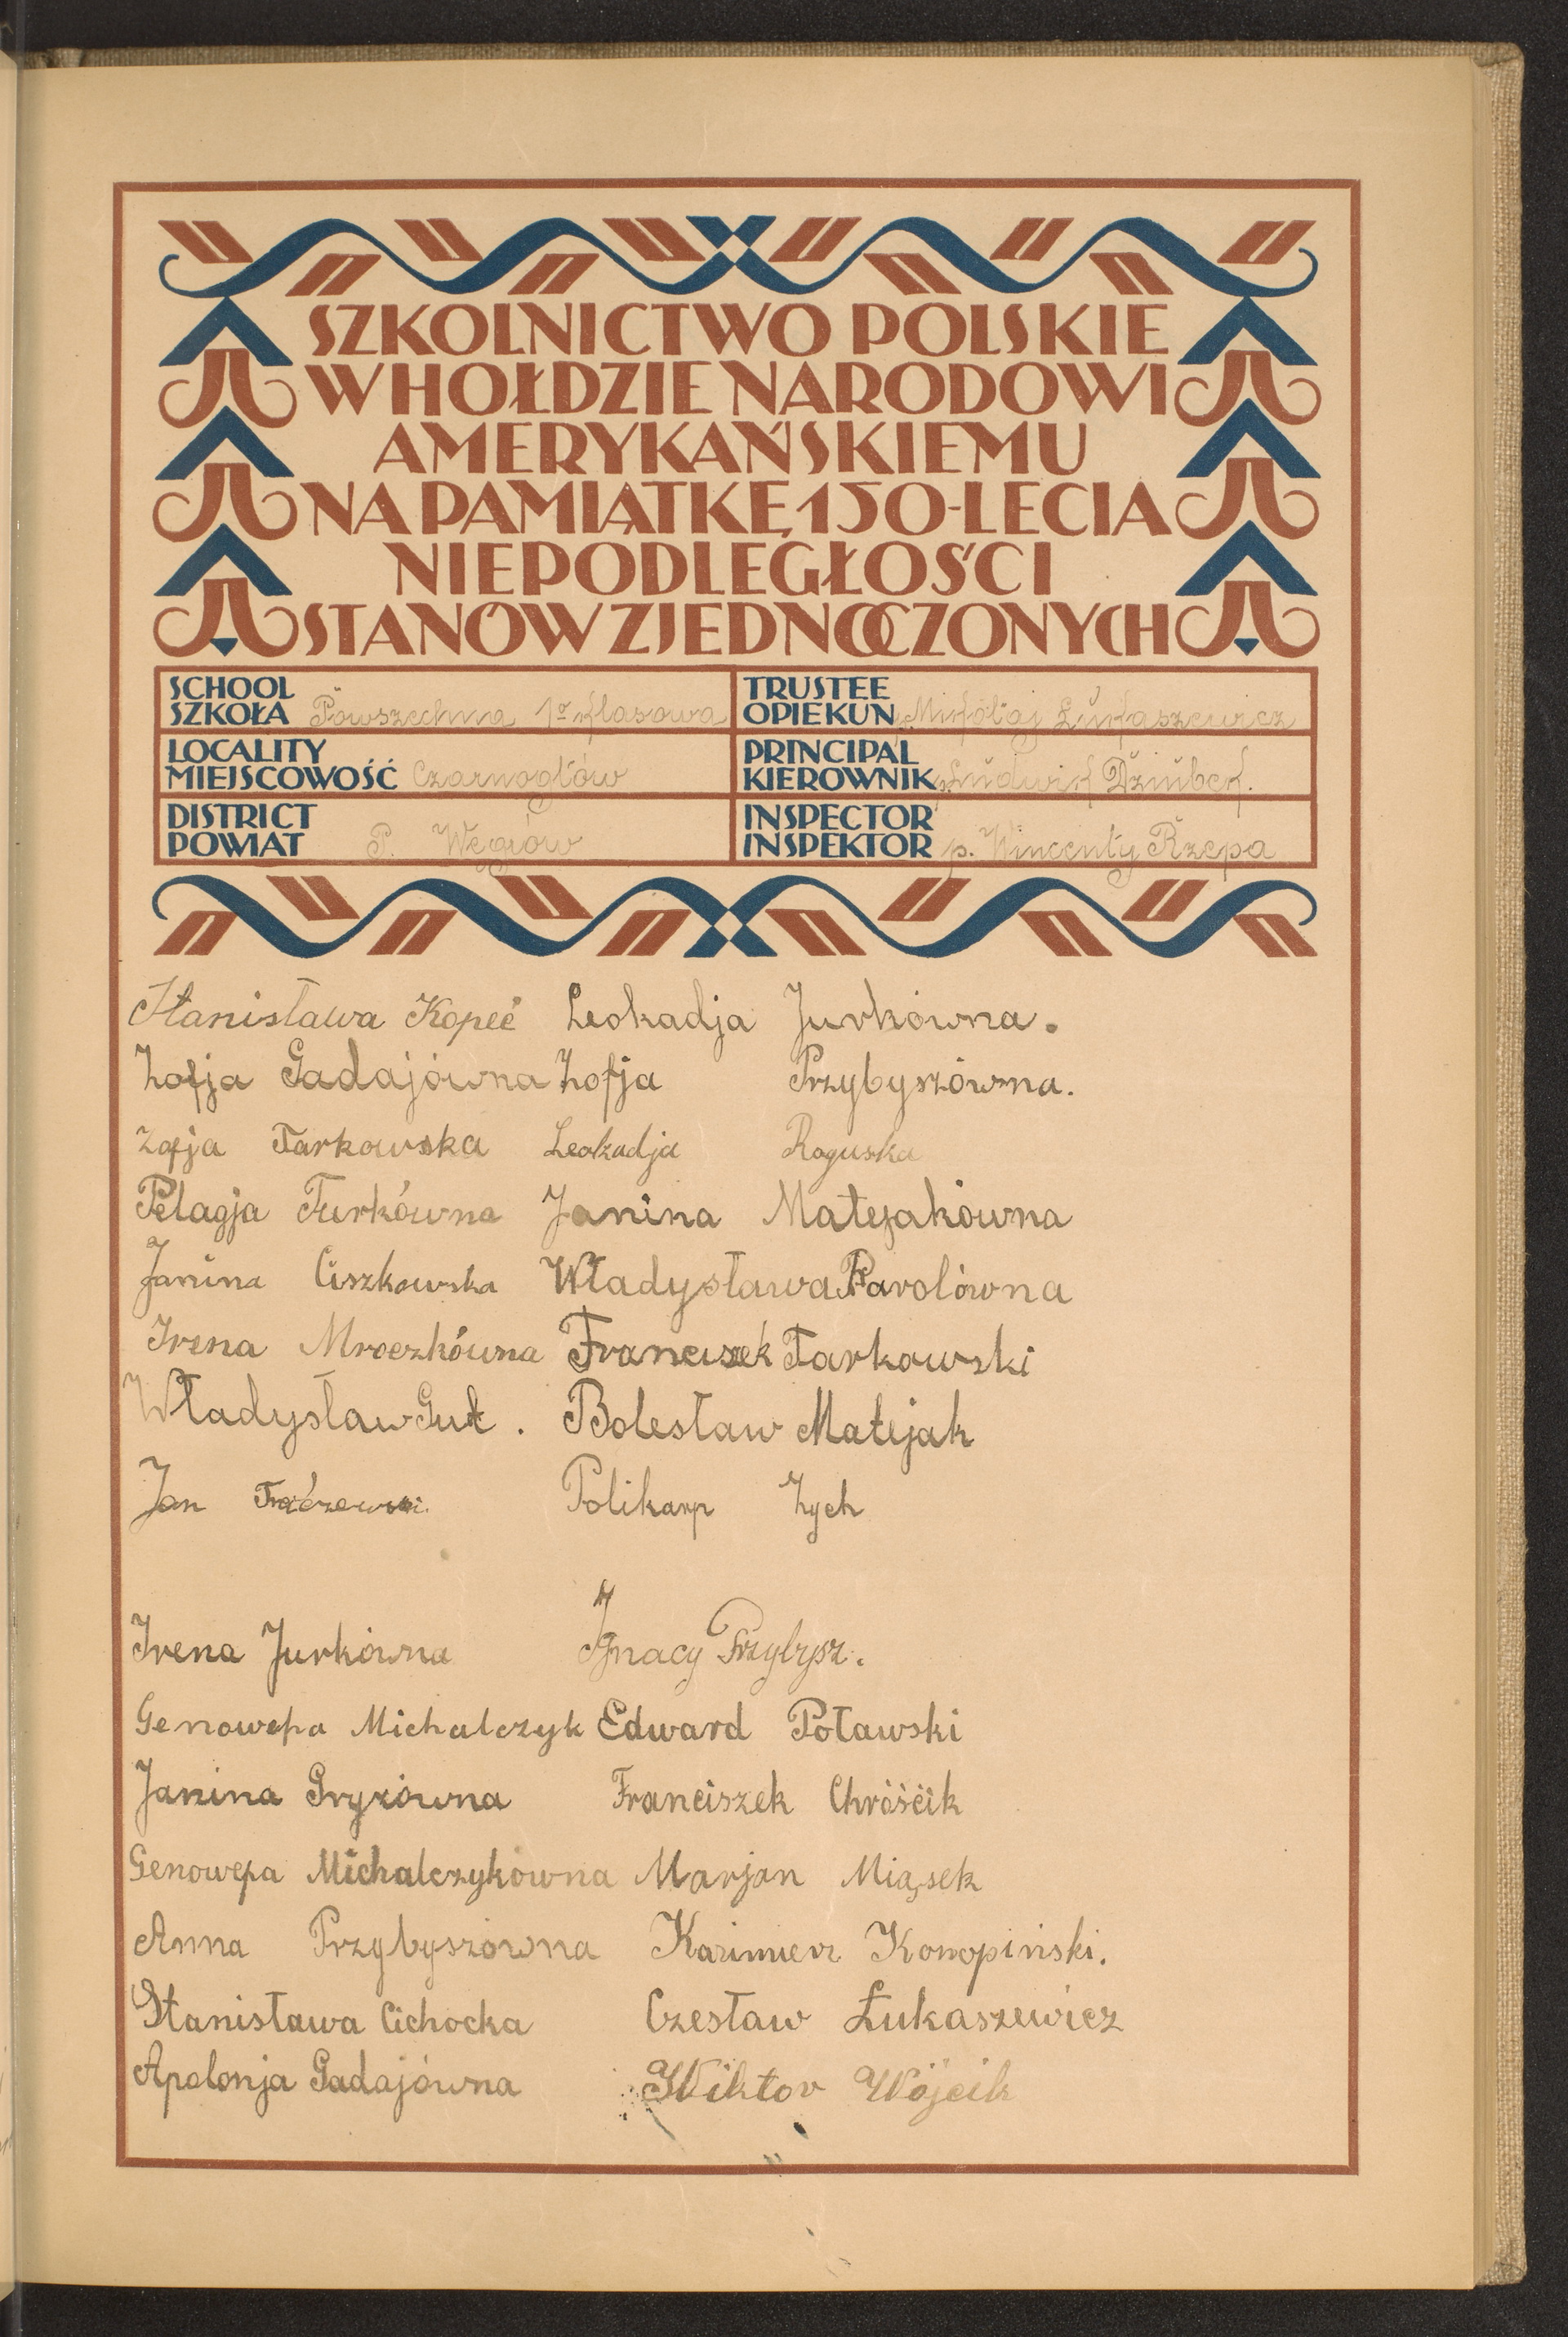 SZKOLNICTWO POLSKIE
W HOŁDZIE NARODOWI
AMERYKAŃSKIEMU
NA PAMIĄTKĘ 150-LECIA
NIEPODLEGŁOŚCI
STANÓW ZJEDNOCZONYCH
SCHOOL
SZKOŁA Powszechna 1º klasowa
TRUSTEE
OPIEKUN p. Mikołaj Łukaszewicz
LOCALITY
MIEJSCOWOŚĆ Czarnogłów
PRINCIPAL
KIEROWNIK p. Ludwik Dziubek.
DISTRICT
POWIAT P. Węgrów
INSPECTOR
INSPEKTOR p. Wincenty Rzepa
Stanisława Kopeć Leokadja Jurkówna.
Zofja Gadajówna Zofja Przybyszówna.
Zofja Tarkowska Leokadja Roguska
Pelagja Turkówna Janina Matejakówna
Janina Ciszkowska Władysława Karolówna
Irena Mroczkówna Franciszek Tarkowski
Władysław Gut. Bolesław Matejak
Jan Polikarp Zych
Irena Jurkówna Ignacy Przybysz.
Genowefa Michalczyk Edward Poławski
Janina Gryzówna Franciszek Chróścik
Genowefa Michalczykówna Marjan Miąsek
Anna Przybyszówna Kazimierz Konopiński.
Stanisława Cichocka Czesław Łukaszewicz
Apolonja Gadajówna Wiktor Wójcik